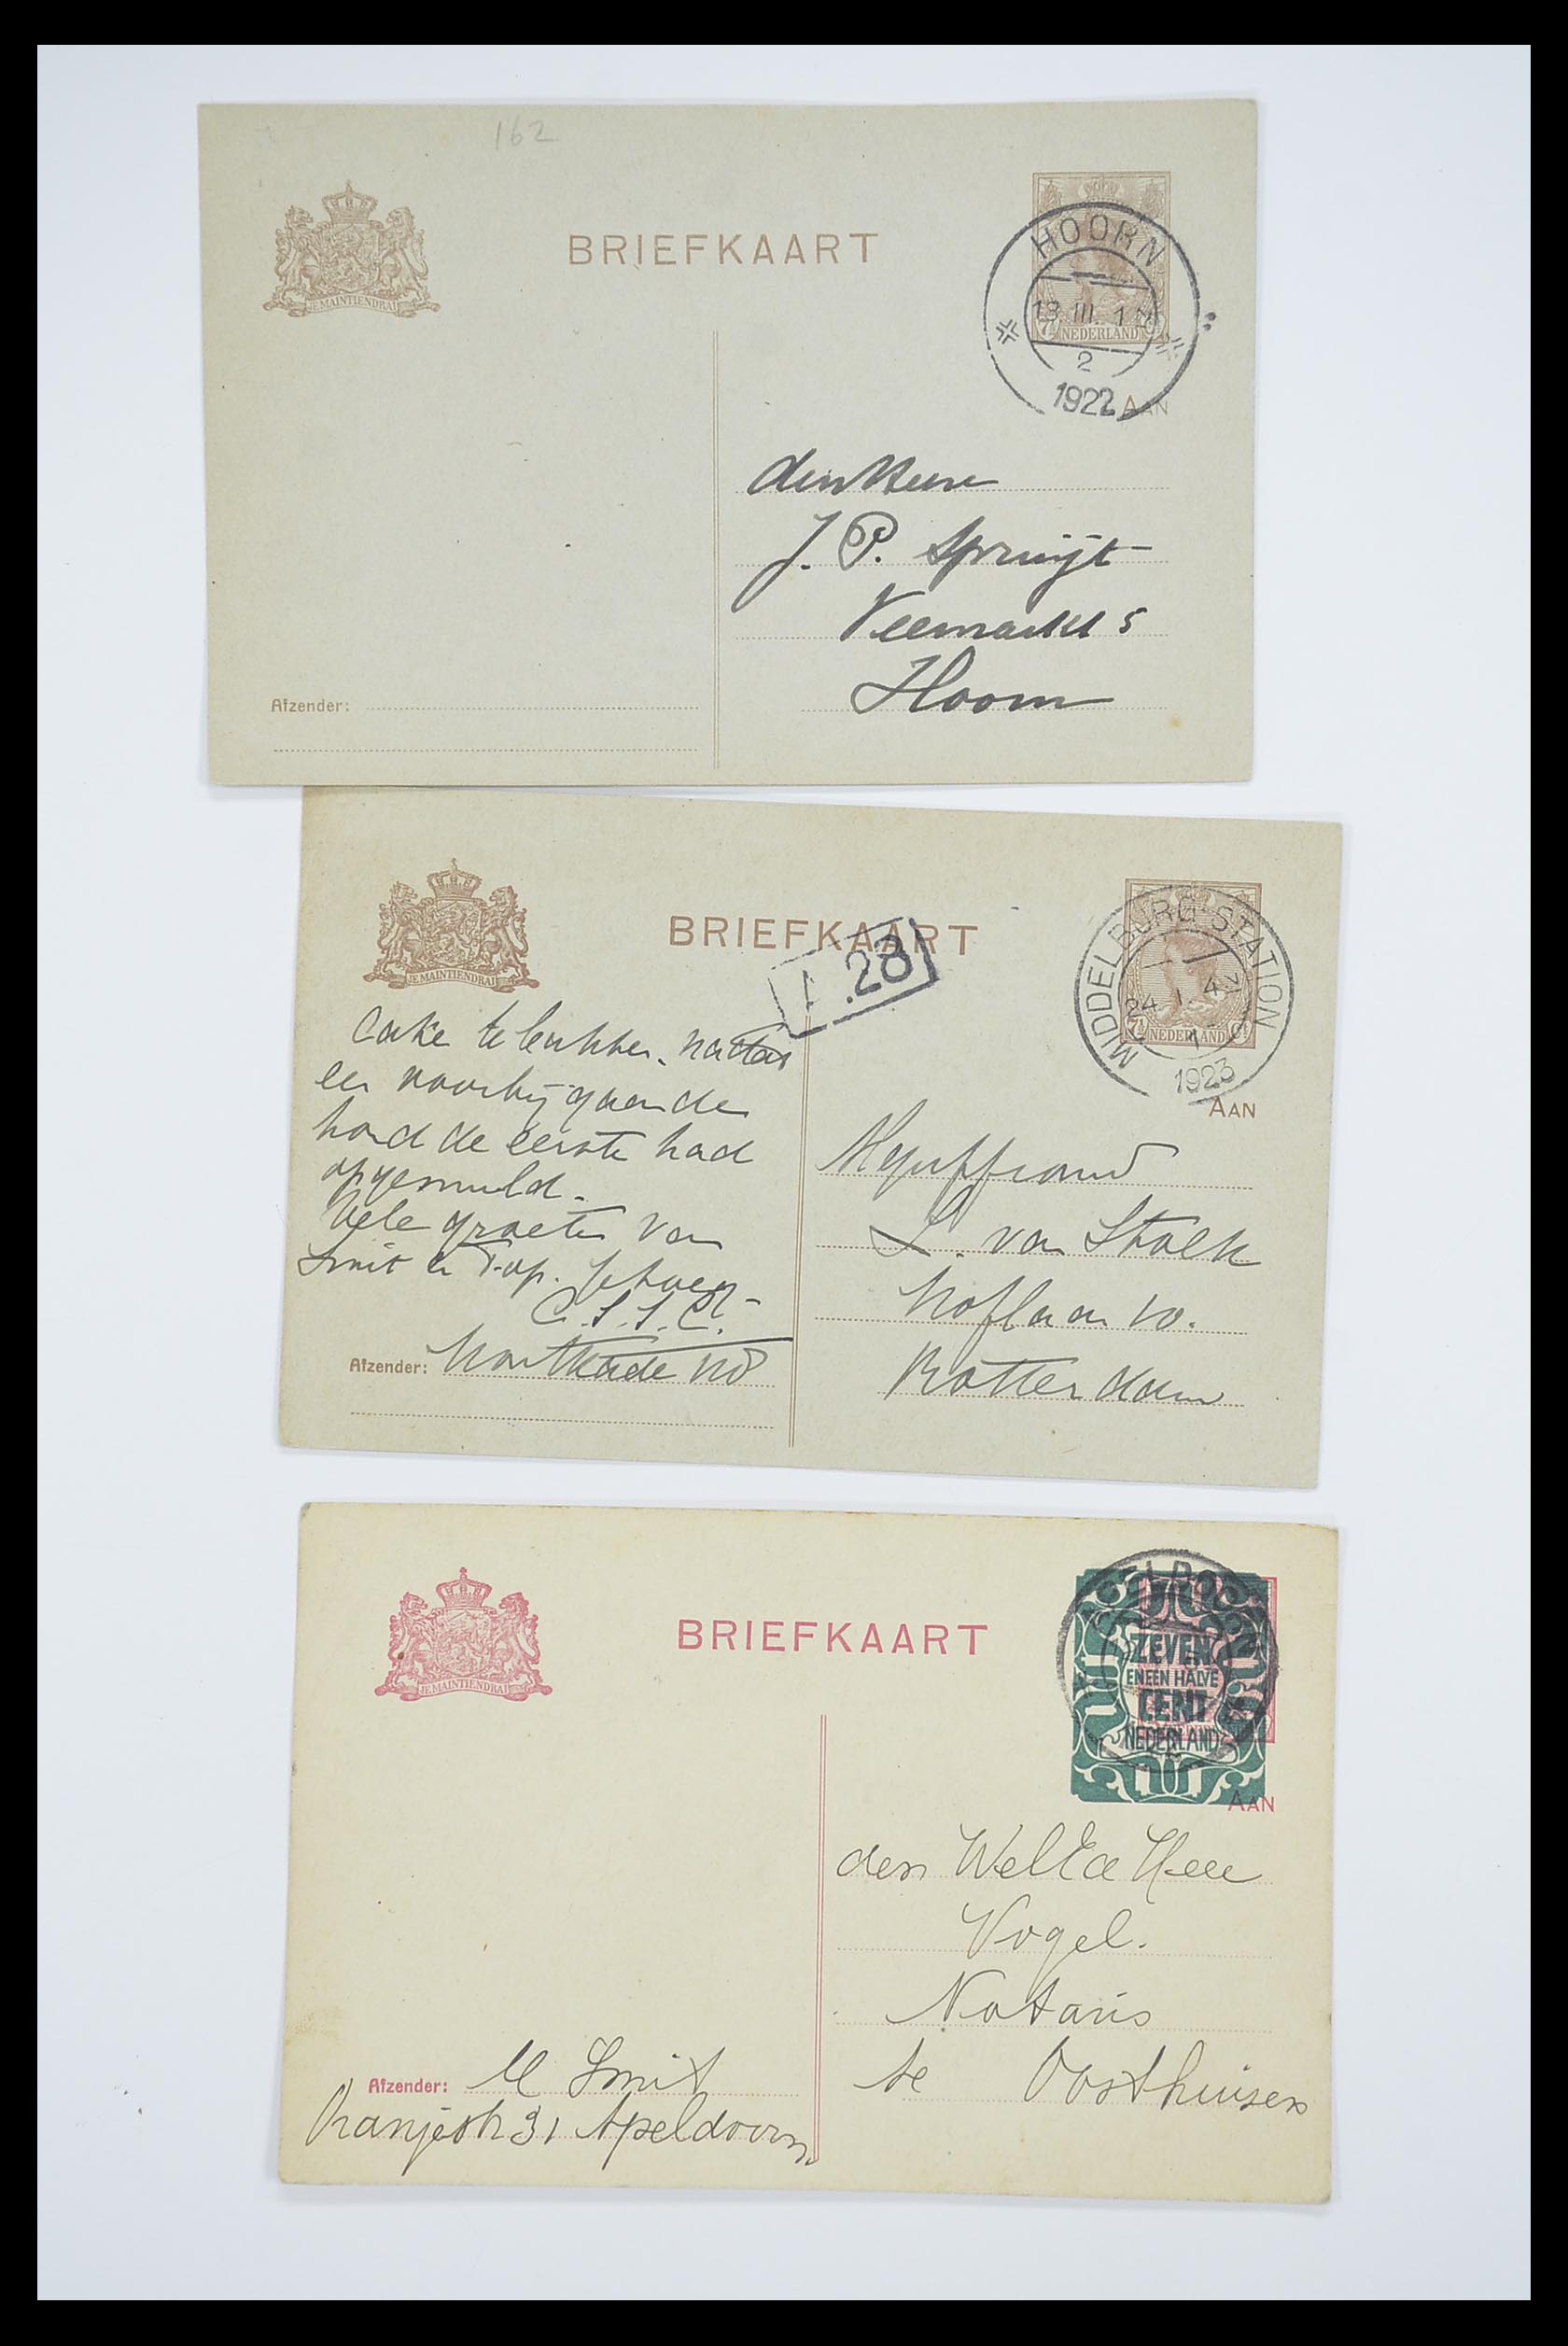 162
JE MAINTIENDRAI
BRIEFKAART
HOORN
13 III 1
2
1922
7½ NEDERLAND
AAN
den Heere
J. P. Spruijt
Veemarkt 5
Hoorn
Afzender:
JE MAINTIENDRAI
BRIEFKAART
1.28
MIDDELBURG-STATION
24 I 4
1
1923
7½ NEDERLAND Ct
AAN
Cake te
een voorbijgaande
hond de eerste had
opgesmuld.
Vele groeten van
Smit en
Afzender:
Mejuffrouw
L. van Stolk
Hoflaan 10.
Rotterdam
JE MAINTIENDRAI
BRIEFKAART
ZEVEN
EN EEN HALVE
CENT
NEDERLAND
AAN
den WelEd Heer
Vogel.
Notaris
te Oosthuizen
Afzender: M Smit
Oranjestr 31 Apeldoorn